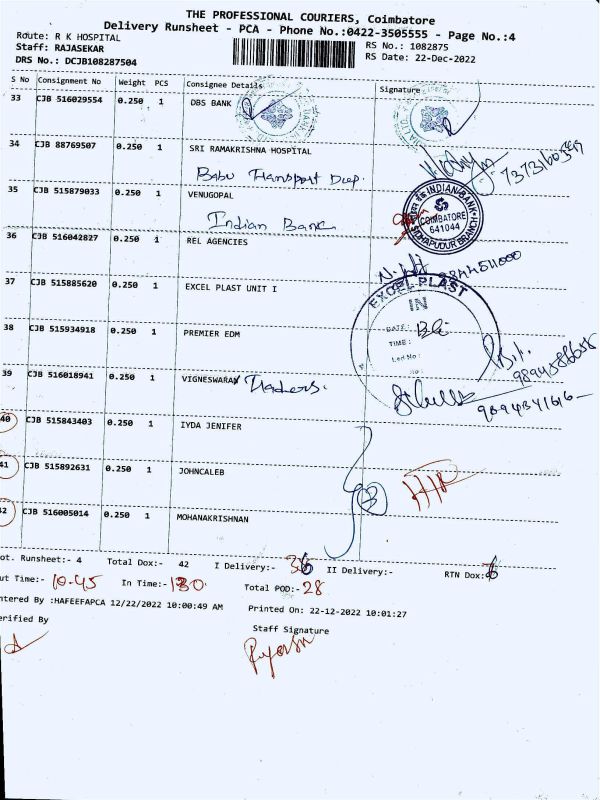 THE PROFESSIONAL COURIERS, Coimbatore
Delivery Runsheet - PCA - Phone No.:0422-3505555 - Page No.:4
Route: R K HOSPITAL
RS No.: 1082875
Staff: RAJASEKAR
RS Date: 22-Dec-2022
DRS No.: DCJB108287504
S No Consignment No Weight PCS Consignee Details Signature
33 CJB 516029554 0.250 1 DBS BANK
34 CJB 88769507 0.250 1 SRI RAMAKRISHNA HOSPITAL
Babu Transport Dep.
35 CJB 515879033 0.250 1 VENUGOPAL
Indian Bank
INDIAN BANK
COIMBATORE
641044
SIDHAPUDUR BRANCH
36 CJB 516042827 0.250 1 REL AGENCIES
37 CJB 515885620 0.250 1 EXCEL PLAST UNIT I
EXCEL PLAST
IN
DATE:
TIME:
38 CJB 515934918 0.250 1 PREMIER EDM
39 CJB 516018941 0.250 1 VIGNESWARAN Traders.
9894341616
40 CJB 515843403 0.250 1 IYDA JENIFER
41 CJB 515892631 0.250 1 JOHNCALEB
42 CJB 516005014 0.250 1 MOHANAKRISHNAN
ot. Runsheet:- 4 Total Dox:- 42 I Delivery:- 36 II Delivery:- RTN Dox: 6
ut Time:- 10.45 In Time:- 130 Total POD:- 28
ntered By :HAFEEFAPCA 12/22/2022 10:00:49 AM Printed On: 22-12-2022 10:01:27
erified By Staff Signature